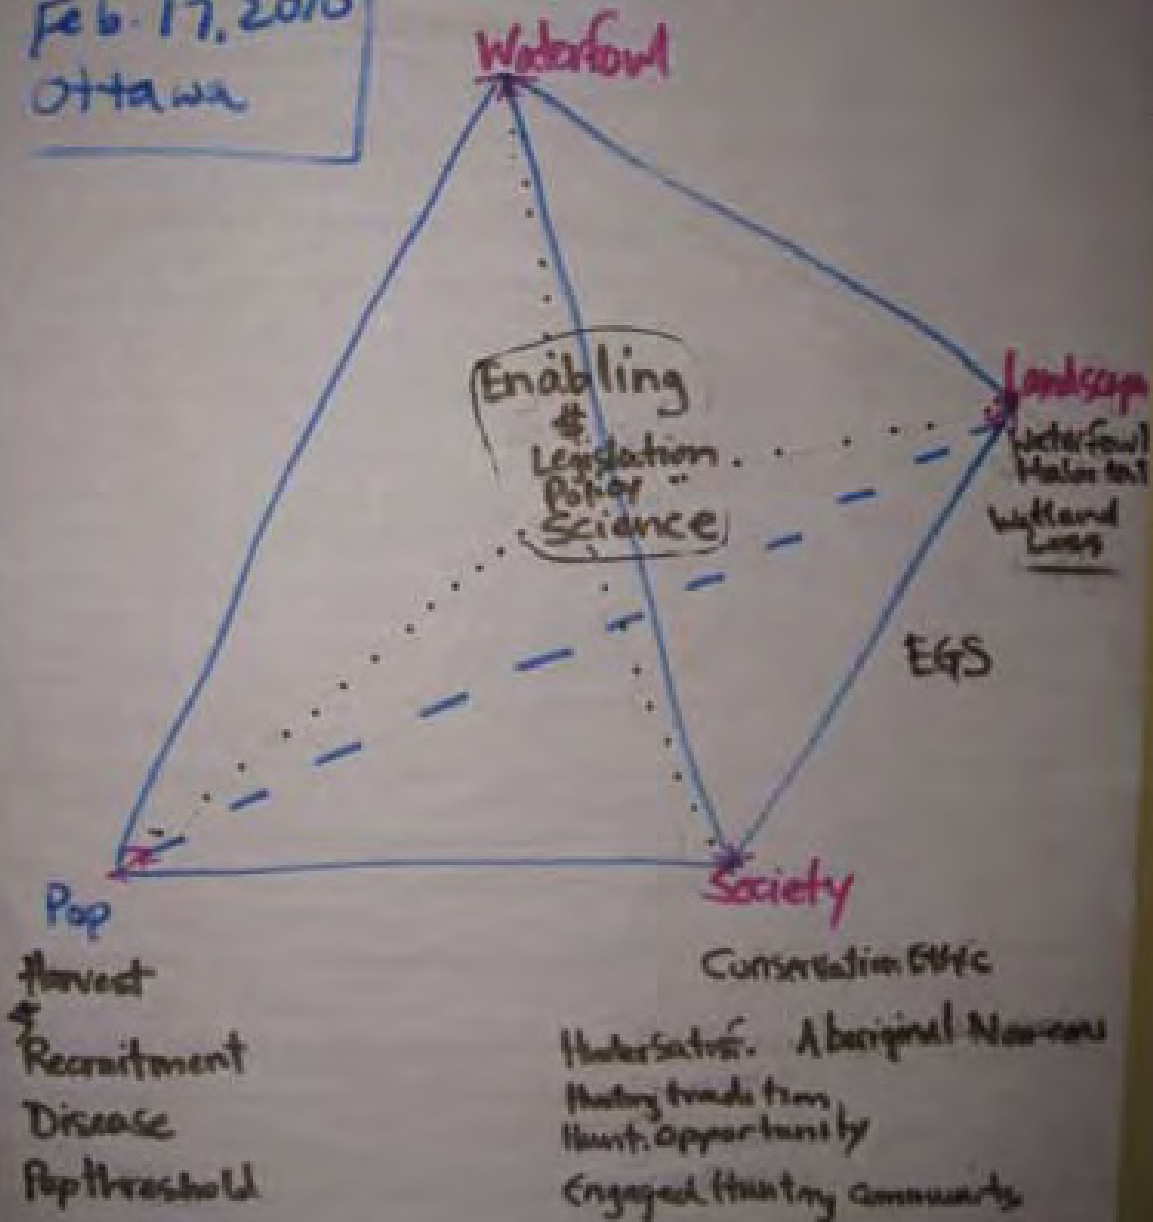 Feb. 17, 2010
Ottawa
Waterfowl
Enabling
&
Legislation
Policy
Science
Landscap
Waterfowl
Wetland
Loss
EGS
Pop
Harvest
&
Recruitment
Disease
Pop threshold
Society
Conservation Ethic
Hunter Satisf. Aboriginal
Hunting tradition
Hunt. Opportunity
Engaged Hunting